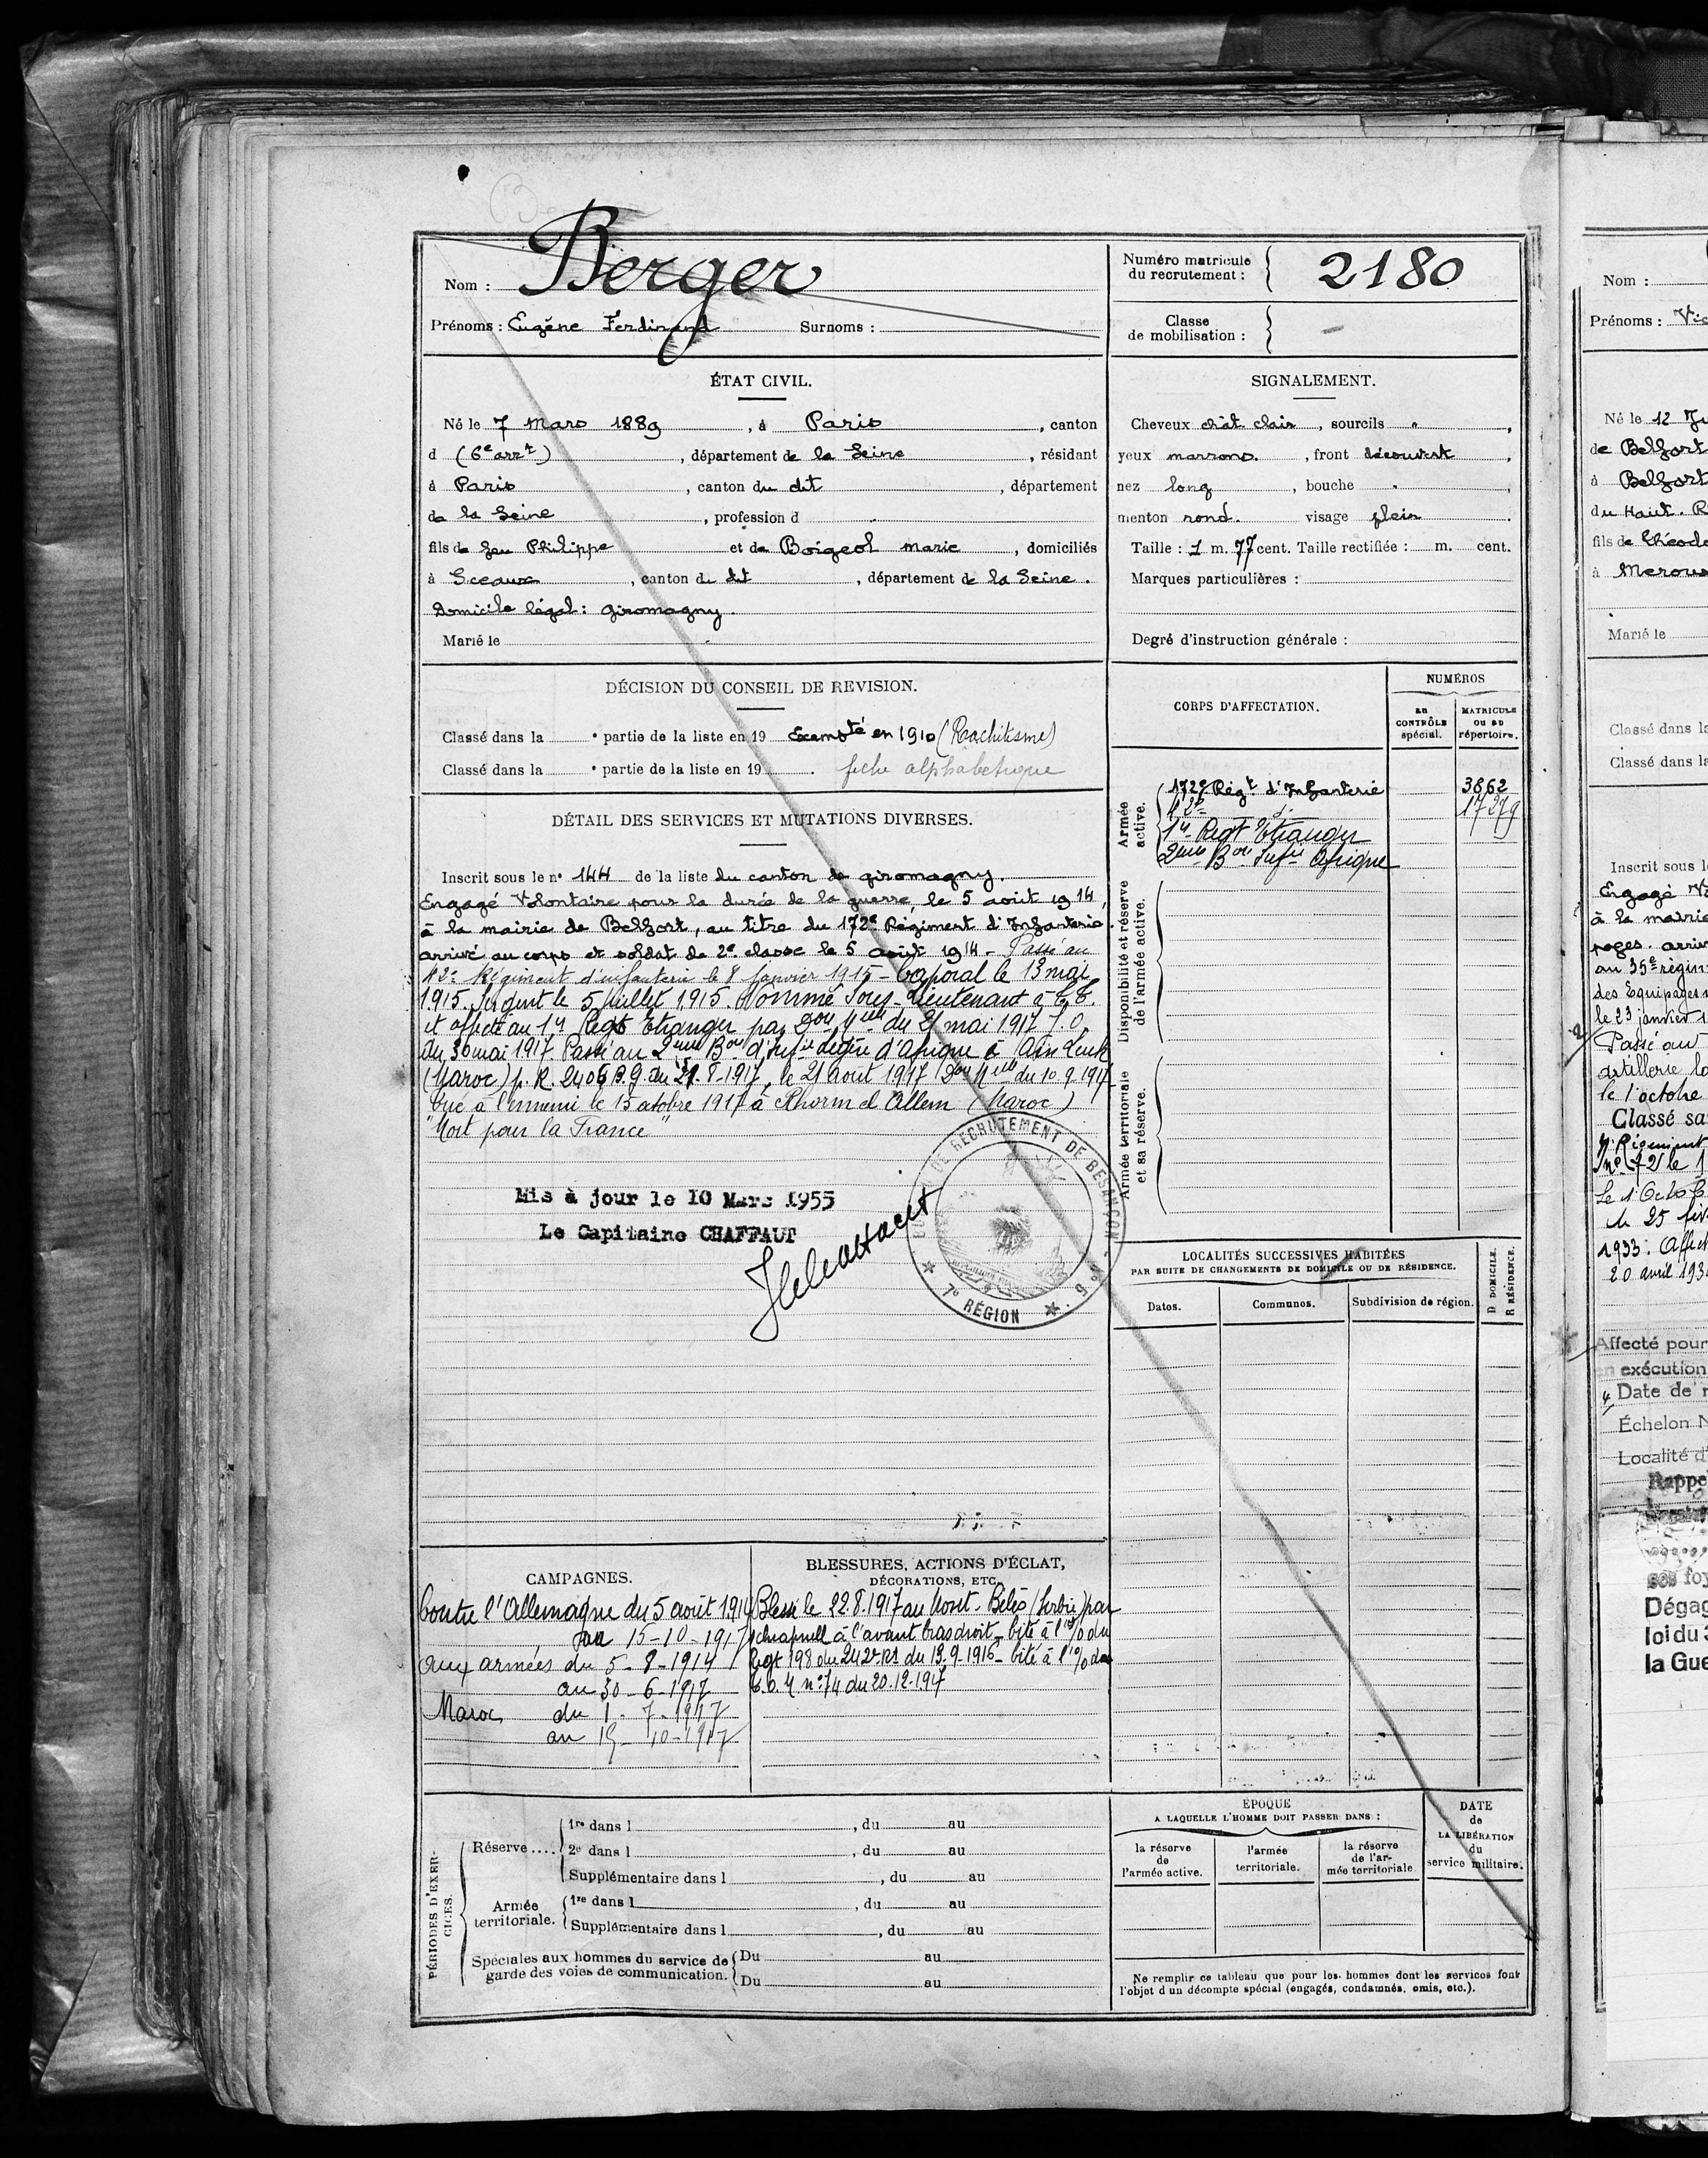 Nom : Berger
Prénoms : Eugène Ferdinand Surnoms :
Numéro matricule
du recrutement : 2180
Classe
de mobilisation : -
ÉTAT CIVIL.
Né le 7 Mars 1889, à Paris, canton
d (6e arrt), département de la Seine, résidant
à Paris, canton du dit, département
de la Seine, profession d
fils de feu Philippe et de Boigeol marie, domiciliés
à Sceaux, canton du dit, département de la Seine.
Domicile légal : giromagny.
Marié le
SIGNALEMENT.
Cheveux chât. clair, sourcils "
yeux marrons., front découvert,
nez long, bouche
menton rond. visage plein.
Taille : 1 m. 77 cent. Taille rectifiée : m. cent.
Marques particulières :
Degré d'instruction générale :
DÉCISION DU CONSEIL DE REVISION.
Classé dans la e partie de la liste en 19 Exempté en 1910 (Rachitisme)
Classé dans la e partie de la liste en 19 . fiche alphabetique
DÉTAIL DES SERVICES ET MUTATIONS DIVERSES.
Inscrit sous le n° 144 de la liste du canton de giromagny.
Engagé Volontaire pour la durée de la guerre, le 5 août 1914,
à la mairie de Belfort, au titre du 172e Régiment d'Infanterie.
arrivé au corps et soldat de 2e classe le 5 août 1914 - Passé au
42e Régiment d'infanterie le 8 Janvier 1915 - Caporal le 13 mai
1915. Sergent le 5 juillet 1915. Nommé Sous-Lieutenant à T.T.
et affecté au 1er Regt Etranger par Don Melle du 21 mai 1917 J.O.
du 30 mai 1917. Passé au 2eme Bon d'Infie légère d'Afrique à
(Maroc) p. R. 2406 B.G. du 21.8.1917, le 21 aout 1917 Don Melle du 10.9.1917
Tué à l'ennemi le 15 octobre 1917 à Khorm el Allem (Maroc)
"Mort pour la France"
Mis à jour le 10 Mars 1955
Le Capitaine CHAFFAUT
DE RECRUTEMENT DE BESANÇON
7e RÉGION
CORPS D'AFFECTATION.
NUMÉROS
au
CONTRÔLE
spécial.
MATRICULE
OU AU
répertoire.
Armée
active.
172e Régt d'Infanterie 3862
42e d° 17279
1er Regt Etranger
2eme Bon Infie Afrique
Disponibilité et réserve
de l'armée active.
Armée territoriale
et sa réserve.
LOCALITÉS SUCCESSIVES HABITÉES
PAR SUITE DE CHANGEMENTS DE DOMICILE OU DE RÉSIDENCE.
Dates. Communes. Subdivision de région.
D DOMICILE.
R RÉSIDENCE.
CAMPAGNES.
Contre l'Allemagne du 5 août 1914
au 15-10-1917
Aux armées du 5-8-1914
au 30-6-1917
Maroc du 1-7-1917
au 15-10-1917
BLESSURES, ACTIONS D'ÉCLAT,
DÉCORATIONS, ETC.
Blessé le 22.8.1917 au Mont- (Serbie) par
schrapnell à l'avant bras droit - cité à l'o/ du
Regt 198 du 242e RI du 13.9.1916 - cité à l'o/ des
T.O.M n° 74 du 20.12.1917
PÉRIODES D'EXER-
CICES.
Réserve ....
1re dans l , du au
2e dans l , du au
Supplémentaire dans l , du au
Armée
territoriale.
1re dans l , du au
Supplémentaire dans l , du au
Spéciales aux hommes du service de
garde des voies de communication.
Du au
Du au
ÉPOQUE
A LAQUELLE L'HOMME DOIT PASSER DANS :
la réserve
de
l'armée active.
l'armée
territoriale.
la réserve
de l'ar-
mée territoriale.
DATE
de
LA LIBÉRATION
du
service militaire.
Ne remplir ce tableau que pour les hommes dont les services font
l'objet d'un décompte spécial (engagés, condamnés, omis, etc.).
Nom :
Prénoms :
Né le 12
de Belfort
à Belfort
du Haut.
fils de
à
Marié le
Classé dans la
Classé dans la
Inscrit sous le
Engagé
à la mairie
au 35e
des Equipages
le 23 janvier
Passé au
artillerie
le 1 octobre
Classé
le 25
1933.
20 avril
Affecté pour
en exécution
Date de
Échelon
Localité
Dégag
loi du
la Gue